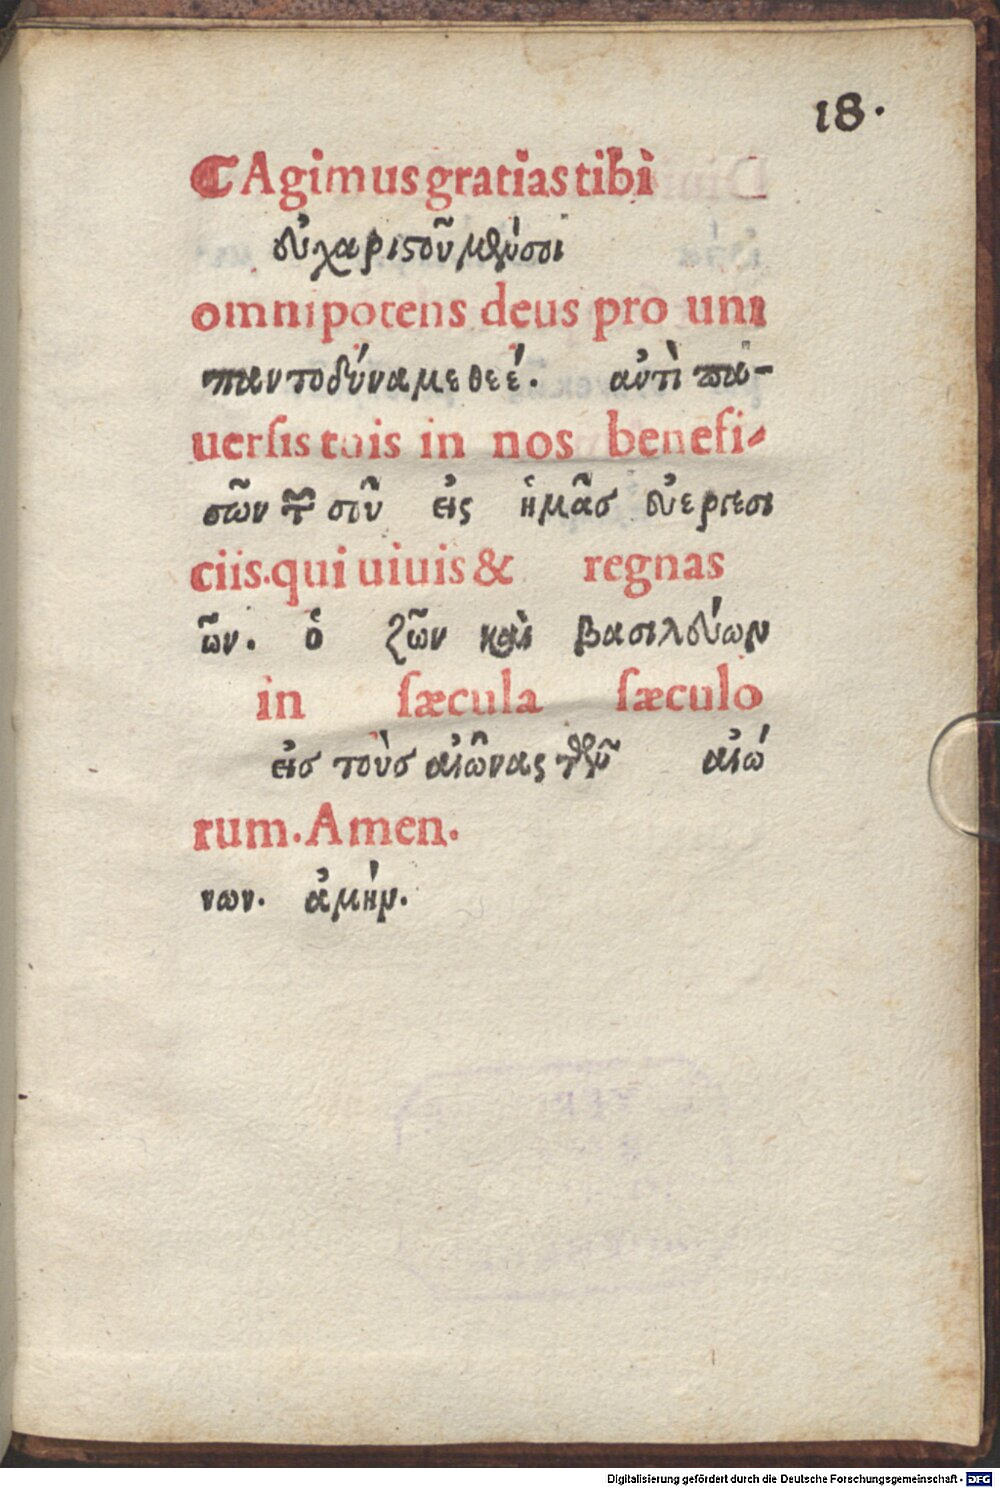 18.
¶ Agimus gratias tibi
εὐχαριστοῦμεν σοι
omnipotens deus pro uni
παντοδύναμε θεέ. ἀντὶ πα-
uersis tuis in nos benefi-
σῶν τῶν σοῦ εἰς ἡμᾶσ εὐεργεσι
ciis. qui uiuis & regnas
ῶν. ὁ ζῶν καὶ βασιλεύων
in sæcula sæculo
εἰσ τοὺσ αἰῶνας τῶν αἰώ
rum. Amen.
νων. ἀμήν.
Digitalisierung gefördert durch die Deutsche Forschungsgemeinschaft - DFG